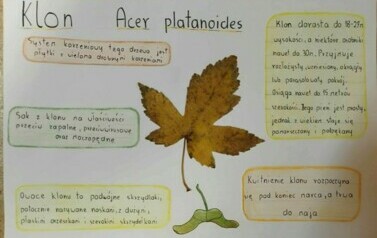 Klon Acer platanoides
System korzeniowy tego drzewa jest
płytki z wieloma drobnymi korzeniami
Klon dorasta do 18-21m
wysokości, a niektóre osobniki
nawet do 30m. Przyjmuje
rozłożysty, okrągły
lub parasolowaty pokrój.
Osiąga nawet do 15 metrów
szerokości. Jego pień jest prosty,
jednak z wiekiem staje się
i popękany.
Sok z klonu ma właściwości
przeciw zapalne, przeciwwirusowe
oraz
Owoce klonu to podwójne skrzydlaki,
potocznie nazywane noskami, z dużymi,
płaskimi orzeszkami i szerokimi skrzydełkami
Kwitnienie klonu rozpoczyna
się pod koniec marca, a trwa
do maja